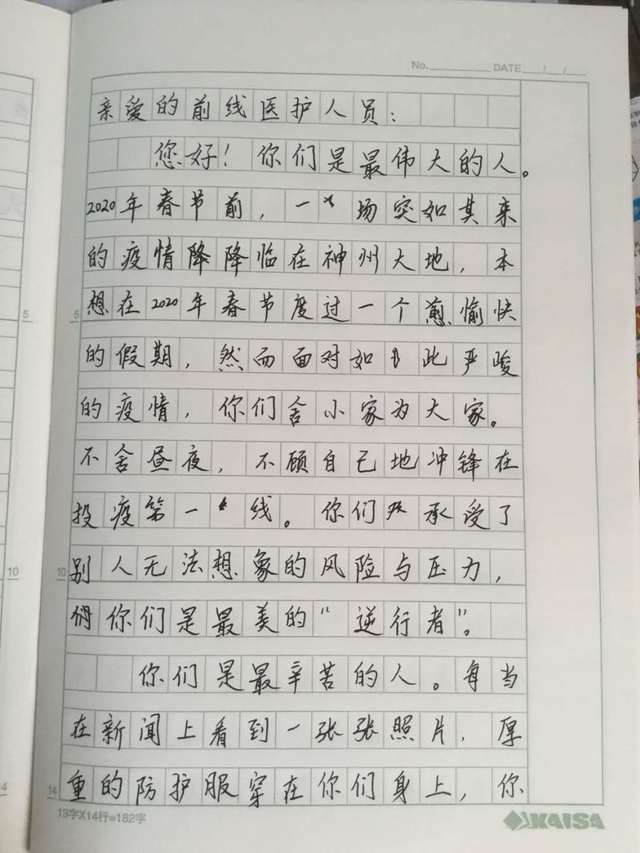 No. DATE / /
亲爱的前线医护人员：
您好！你们是最伟大的人。
2020年春节前，一场突如其来
的疫情降降临在神州大地，本
想在2020年春节度过一个愈愉快
的假期，然而面对如此严峻
的疫情，你们舍小家为大家。
不舍昼夜，不顾自己地冲锋在
投疫第一线。你们承受了
别人无法想象的风险与压力，
你们是最美的“逆行者”。
你们是最辛苦的人。每当
在新闻上看到一张张照片，厚
重的防护服穿在你们身上，你
5
5
10
10
4
14
13字X14行=182字
KAISA